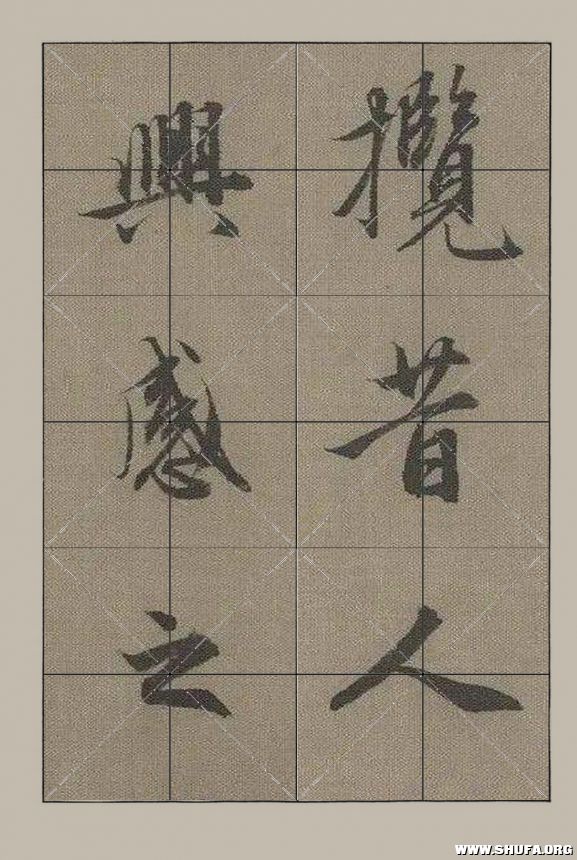 攬昔人
興感之
WWW.SHUFA.ORG